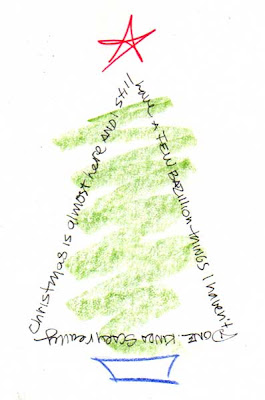 Christmas is almost here AND i still
have A FEW BAZillion things I haven't
DONE.. Kinda Scary really